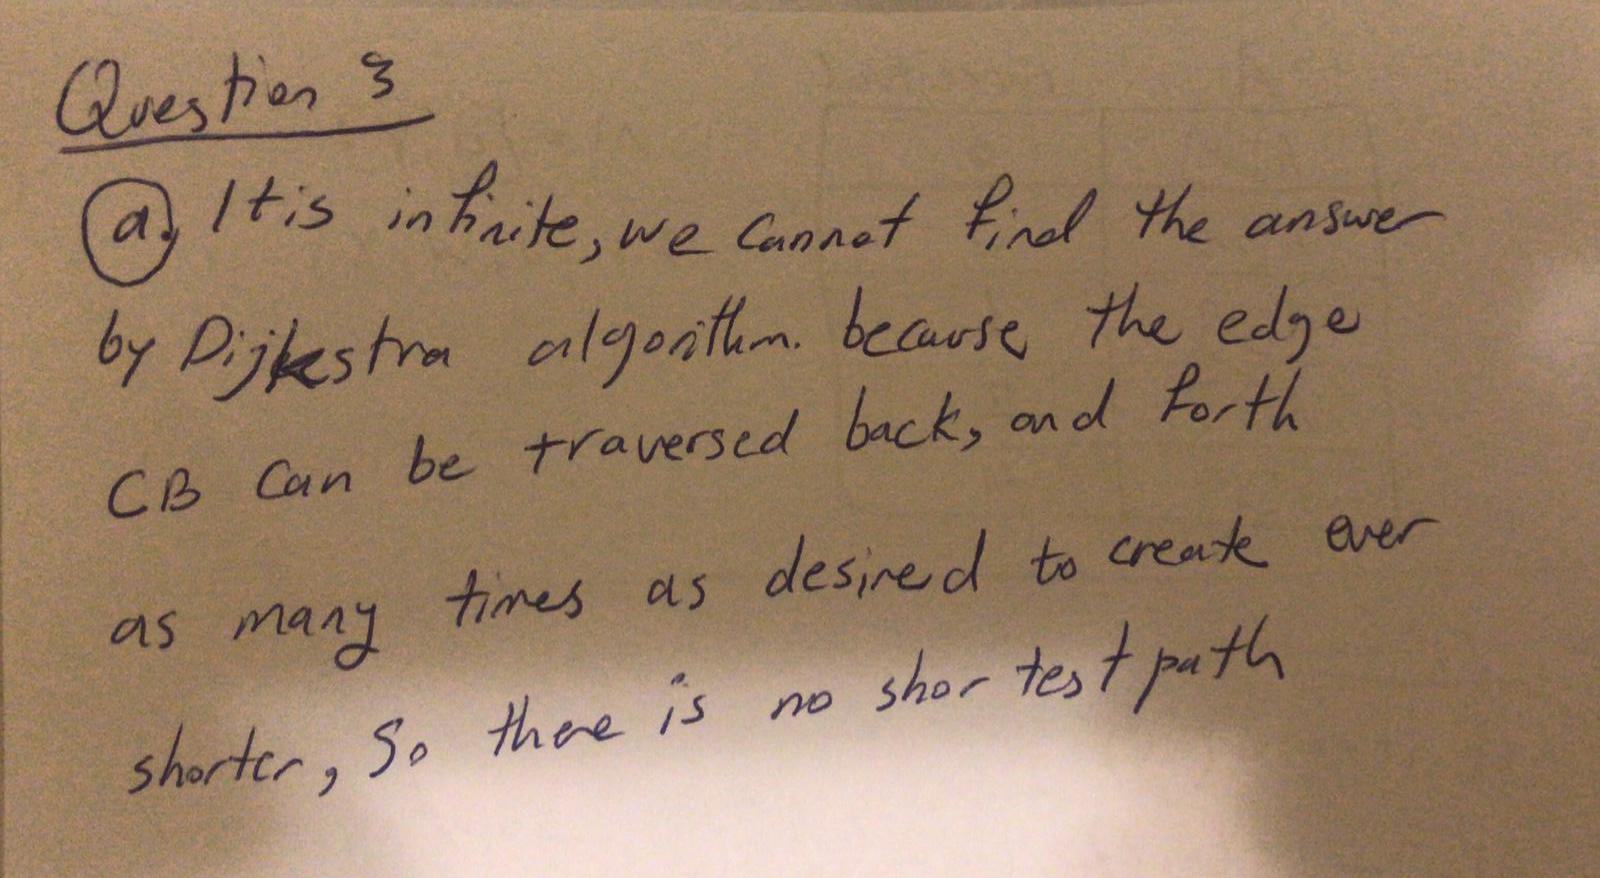 Question 3
a. It is infinite, we cannot find the answer
by Dijkestra algorithm. because the edge
CB can be traversed back, and forth
as many times as desired to create ever
shorter, So there is no shortest path